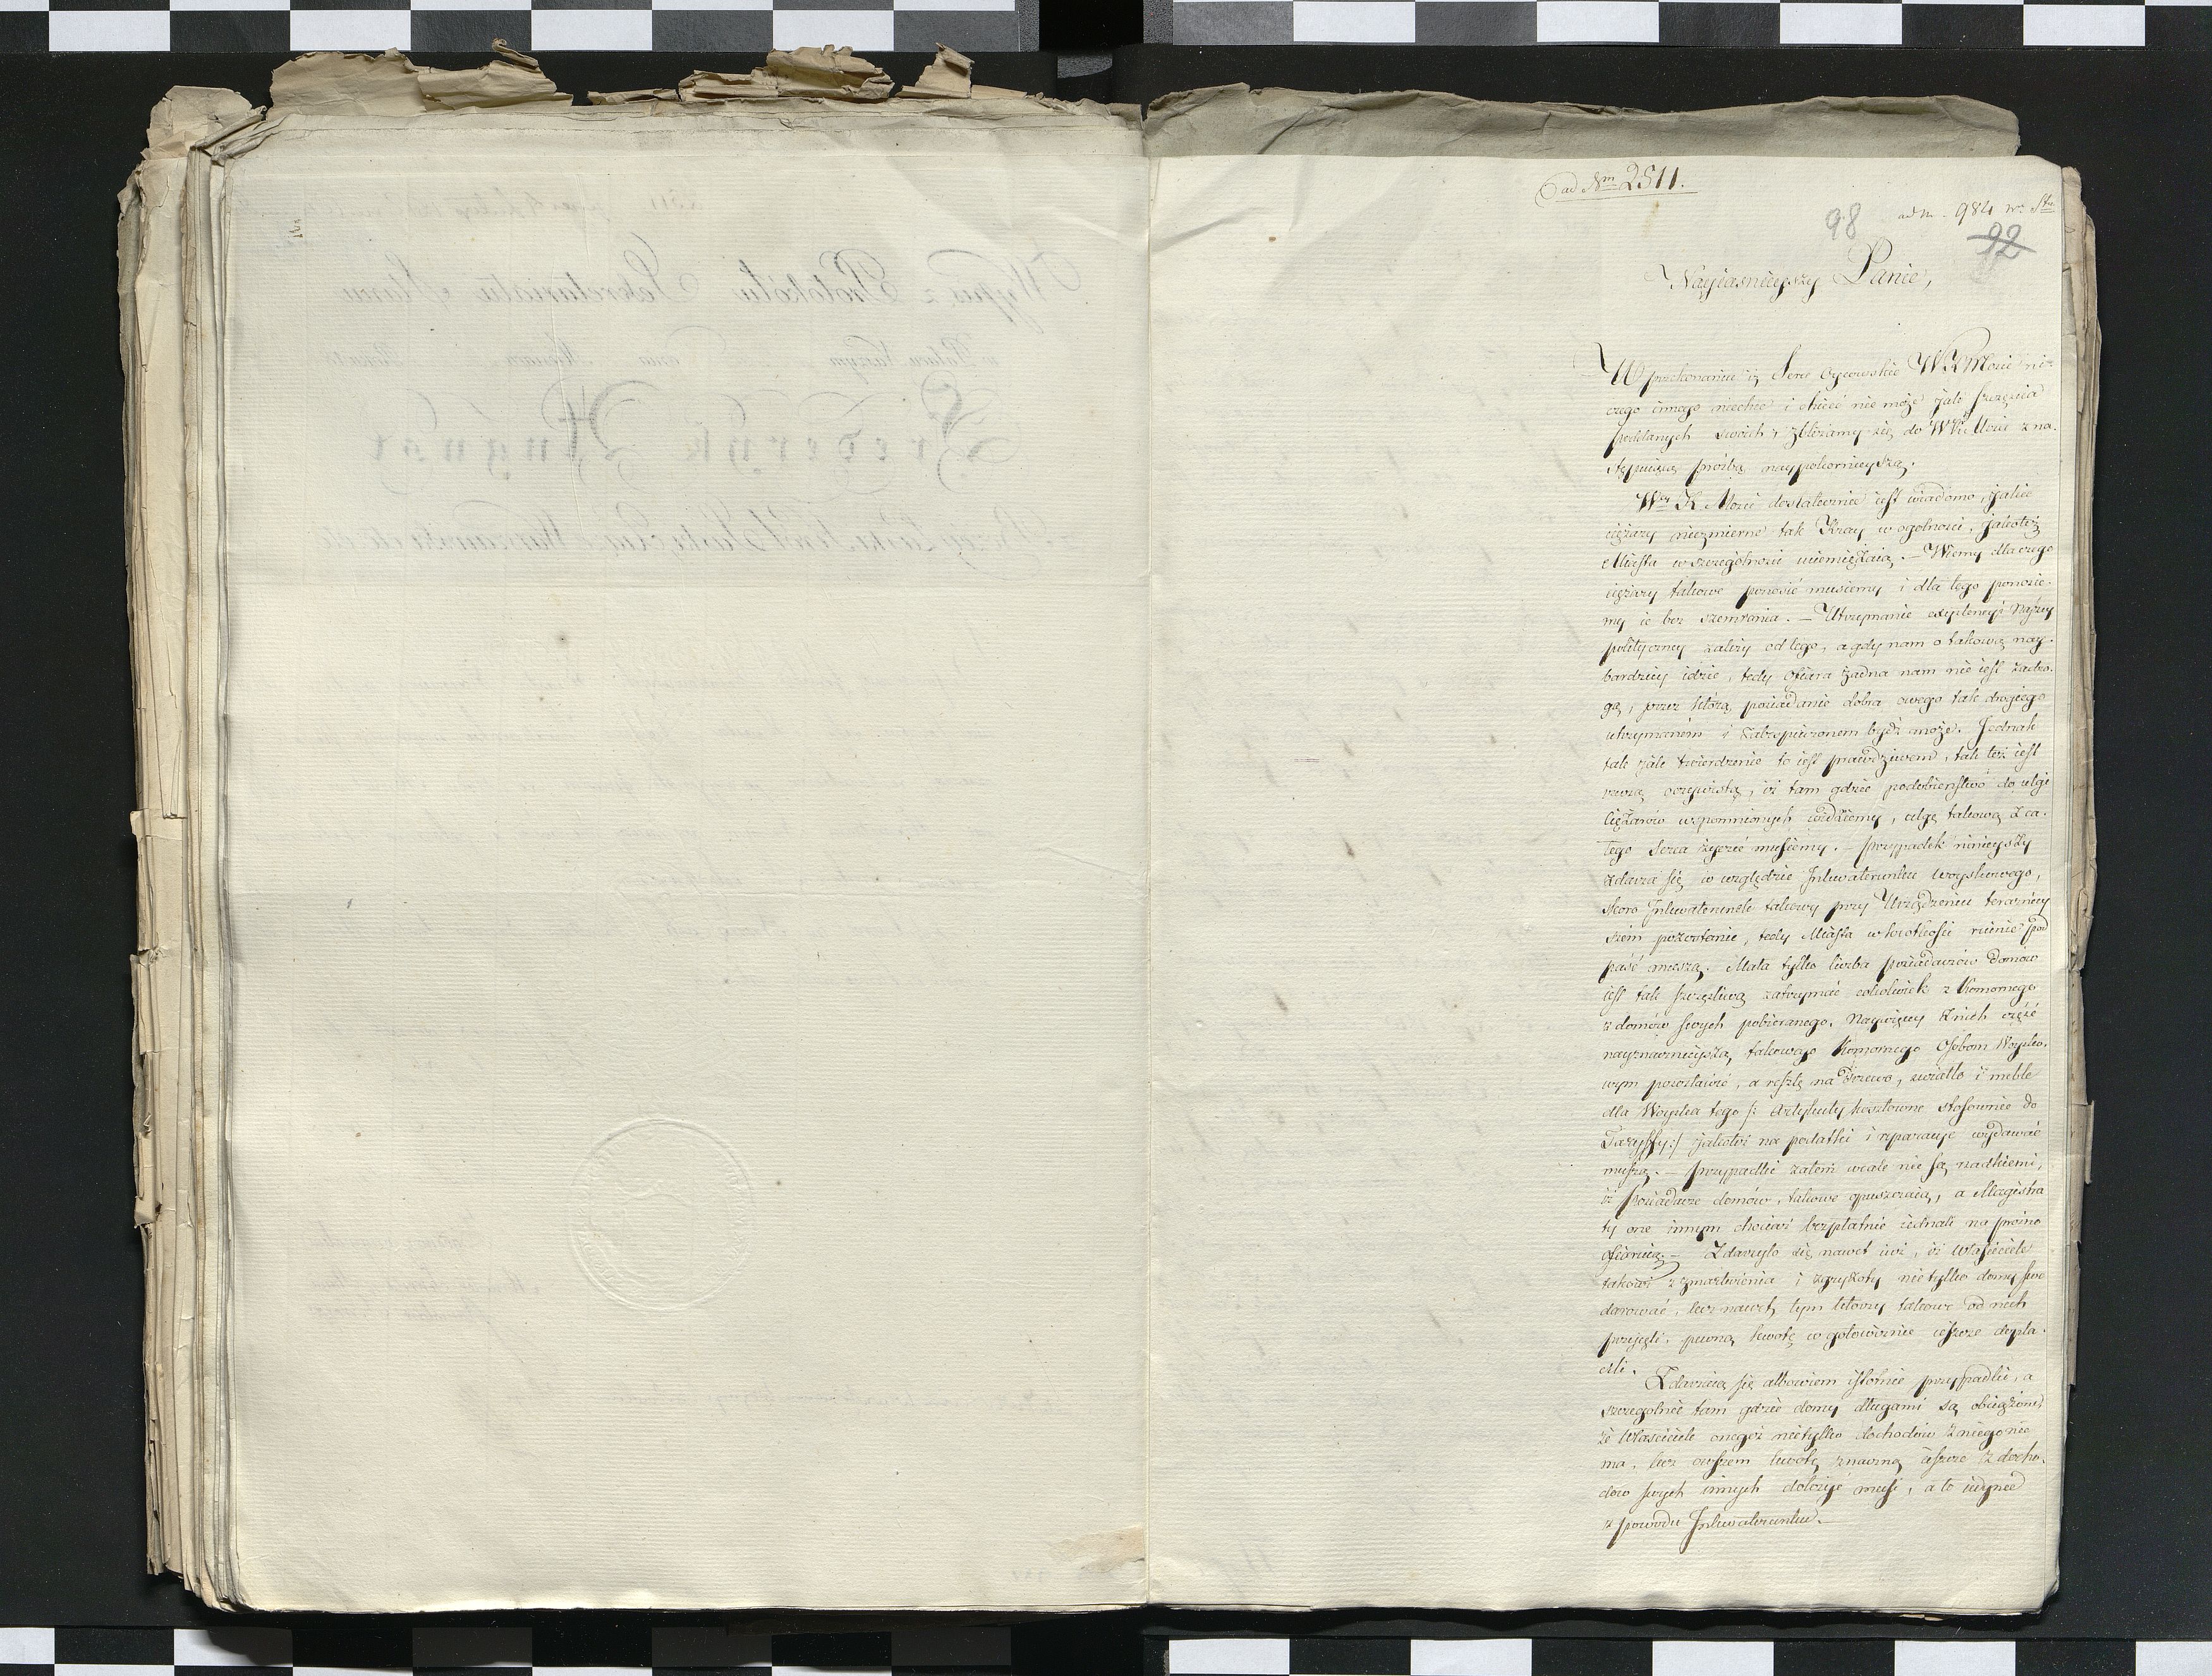 ad Nm 2511.
ad N. 984
98
92
Nayiasnieyszy Panie,
W przekonaniu iż Serce Oycowskie WKMości ni-
czego innego niechce i chcieć nie może jak szczęścia
poddanych swoich, zbliżamy się do WKMości z na-
stępuiącą proźbą naypokornieyszą.
Wey K Mości dostatecznie iest wiadomo, jakie
ciężary niezmierne tak Kray w ogolności, jakoteż
Miasta w szczególności uciemiężaią. — Wiemy dla czego
ciężary takowe ponosić musiemy i dla tego ponosie-
my ie bez szemrania. — Utrzymanie exystencyi Naszey
polityczney zależy od tego, a gdy nam o takową nay-
bardziey idzie, tedy ofiara żadna nam nie iest za dro-
gą, przez którą posiadanie dobra owego tak drogiego
utrzymaném i zabezpieczonem bydź może. Jednak
tak jak twierdzenie to iest prawdziwem, tak też iest
rzeczą oczywistą, iż tam gdzie podobieństwo do ulgi
Ciężarów wspomnionych widziemy, ulgę takową z ca-
łego Serca życzyć musiemy. — Przypadek ninieyszy
zdarza się w względzie Inkwaterunku woyskowego,
skoro Inkwaterunek takowy przy Urządzeniu teraźniey
szém pozostanie, tedy Miasta w krotkości ruinie pod
paść muszą. Mała tylko liczba posiadaczów domów
iest tak szczęśliwą zatrzymać cokolwiek z Komornego
z domów swych pobieranego. Naywięcey z nich część
nayznacznieyszą takowego Komornego Osobom Woysko-
wym pozostawić, a resztę na Drzewo, swiatło i meble
dla Woyska tego /: Artykuły kosztowne stosownie do
Taryffy :/ jakoteż na podatki i reparacye wydawać
muszą. — Przypadki zatem wcale nie są rzadkiemi,
iż posiadacze domów, takowe opuszczaią, a Magistra
ty one innym chociaż bezpłatnie iednak na prożno
ofiaruią. — Zdarzyło się nawet iuż, iż Własciciele
takowi z zmartwienia i zgryzoty nie tylko domy swe
darować, lecz nawet tym którzy takowe od nich
przyjęli, pewną kwotę w gotowiznie ieszcze dopła-
cili.
Zdarzaią się albowiem istotnie przypadki, a
szczegolnie tam gdzie domy długami są obciążone,
że Własciciele onegoż nietylko dochodów z niego nie
ma, lecz owszem kwotę znaczną ieszcze z docho-
dów swych innych dołożyć musi, a to iedynie
z powodu Inkwaterunku. —